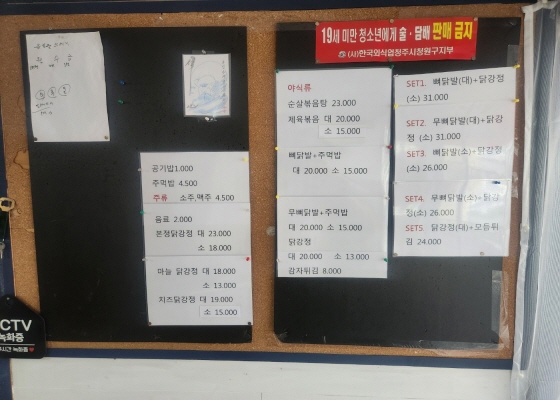 19세 미만 청소년에게 술·담배 판매 금지
(사)한국외식업청주시청원구지부
공기밥1.000
주먹밥 4.500
주류 소주,맥주 4.500
음료 2.000
본정닭강정 대 23.000
소 18.000
마늘 닭강정 대 18.000
소 13.000
치즈닭강정 대 19.000
소 15.000
야식류
순살볶음탕 23.000
제육볶음 대 20.000
소 15.000
뼈닭발+주먹밥
대 20.000 소 15.000
무뼈닭발+주먹밥
대 20.000 소 15.000
닭강정
대 20.000 소 13.000
감자튀김 8.000
SET1. 뼈닭발(대)+닭강정
(소) 31.000
SET2. 무뼈닭발(대)+닭강
정 (소) 31.000
SET3. 뼈닭발(소)+닭강정
(소) 26.000
SET4. 무뼈닭발(소)+닭강
정(소) 26.000
SET5. 닭강정(대)+모듬튀
김 24.000
CCTV
녹화중